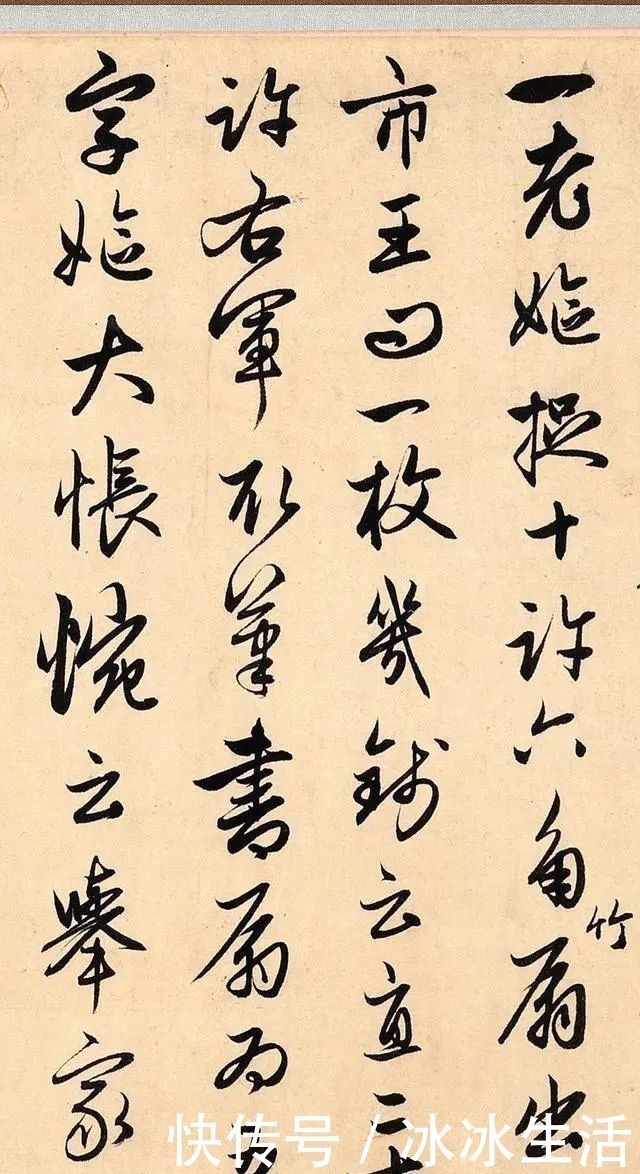 一老嫗捉十許六角竹扇出
市王問一枚幾錢云直二十
許右軍取筆書扇為五
字嫗大悵惋云舉家
快传号 / 冰冰生活